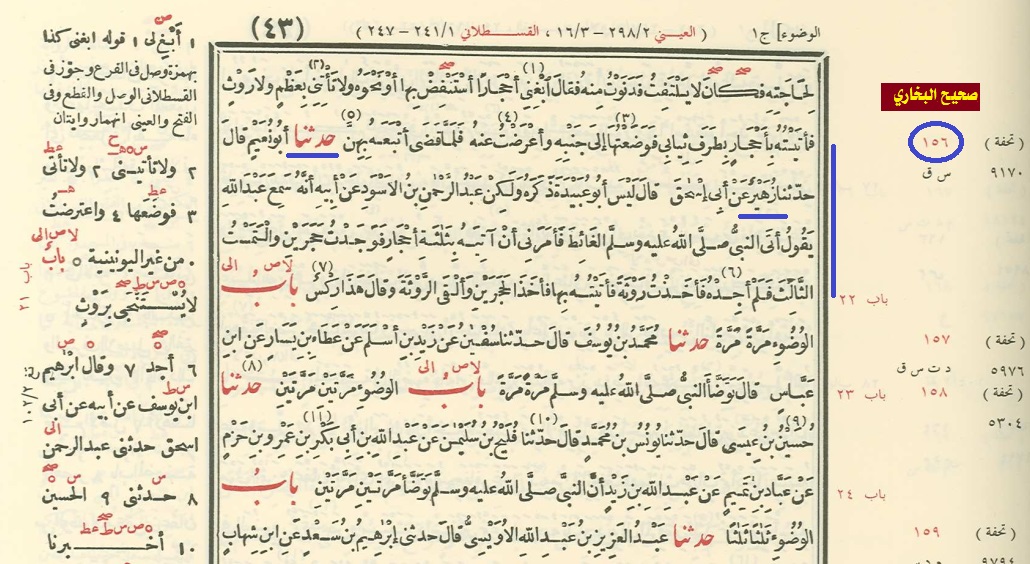 الوضوء] ج١
( العيني ٢٩٨/٢ – ١٦/٣ ، القسطلاني ٢٤١/١ – ٢٤٧ )
(٤٣)
لحاجته فكان لا يلتفت فدنوت منه فقال ابغني أحجارا أستنفض بها أو نحوه ولا تأتني بعظم ولا روث
فأتيته بأحجار بطرف ثيابي فوضعتها إلى جنبه وأعرضت عنه فلما قضى أتبعه بهن حدثنا أبو نعيم قال
حدثنا زهير عن أبي إسحق قال ليس أبو عبيدة ذكره ولكن عبد الرحمن بن الأسود عن أبيه أنه سمع عبد الله
يقول أتى النبي صلى الله عليه وسلم الغائط فأمرني أن آتيه بثلثة أحجار فوجدت حجرين والتمست
الثالث فلم أجده فأخذت روثة فأتيته بها فأخذ الحجرين وألقى الروثة وقال هذا ركس باب
الوضوء مرة مرة حدثنا محمد بن يوسف قال حدثنا سفين عن زيد بن أسلم عن عطاء بن يسار عن ابن
عباس قال توضأ النبي صلى الله عليه وسلم مرة مرة باب الوضوء مرتين مرتين حدثنا
حسين بن عيسى قال حدثنا يونس بن محمد قال حدثنا فليح بن سليمن عن عبد الله بن أبي بكر بن عمرو بن حزم
عن عباد بن تميم عن عبد الله بن زيد أن النبي صلى الله عليه وسلم توضأ مرتين مرتين باب
الوضوء ثلثا ثلثا حدثنا عبد العزيز بن عبد الله الأويسي قال حدثني إبرهيم بن سعد عن ابن شهاب
صحيح البخاري
( تحفة ) ١٥٦
٩١٧٠ س ق
باب ٢٢
( تحفة ) ١٥٧
٥٩٧٦ د ت س ق
( تحفة ) ١٥٨ باب ٢٣
٥٣٠٤
باب ٢٤
( تحفة ) ١٥٩
١ أبغ لي ١ قوله ابغني كذا
بهمزة وصل في الفرع وجوز في
القسطلاني الوصل والقطع وفي
الفتح والعيني انهما روايتان
٢ ولا تأتيني ٢ ولا تأتي
٣ فوضعها ٤ واعترضت
٥ من غير اليونينية ٥ باب
لا يستنجي بروث
٦ أجد ٧ وقال ابرهيم
ابن يوسف عن أبيه عن أبي
اسحق حدثني عبد الرحمن
٨ حدثني ٩ الحسين
١٠ أخبرنا
باب ٢١